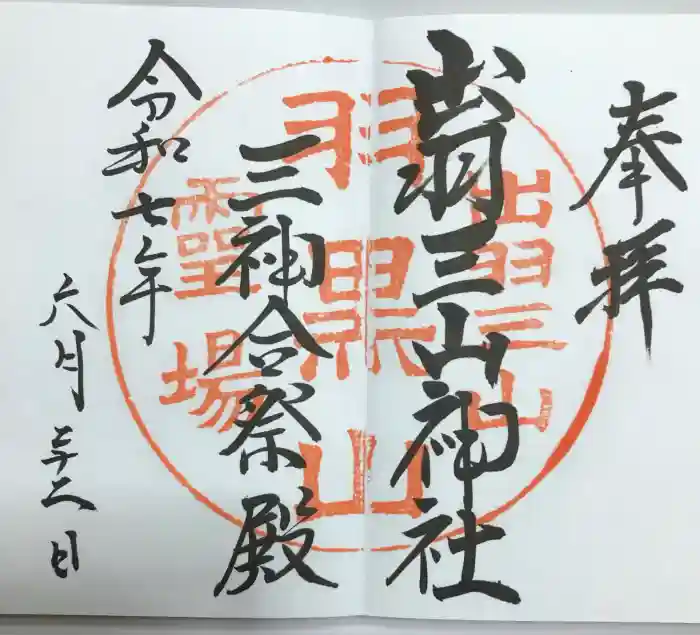 奉拝
出羽三山神社
三神合祭殿
令和七年
六月二十二日
出羽三山
羽黒山
靈場